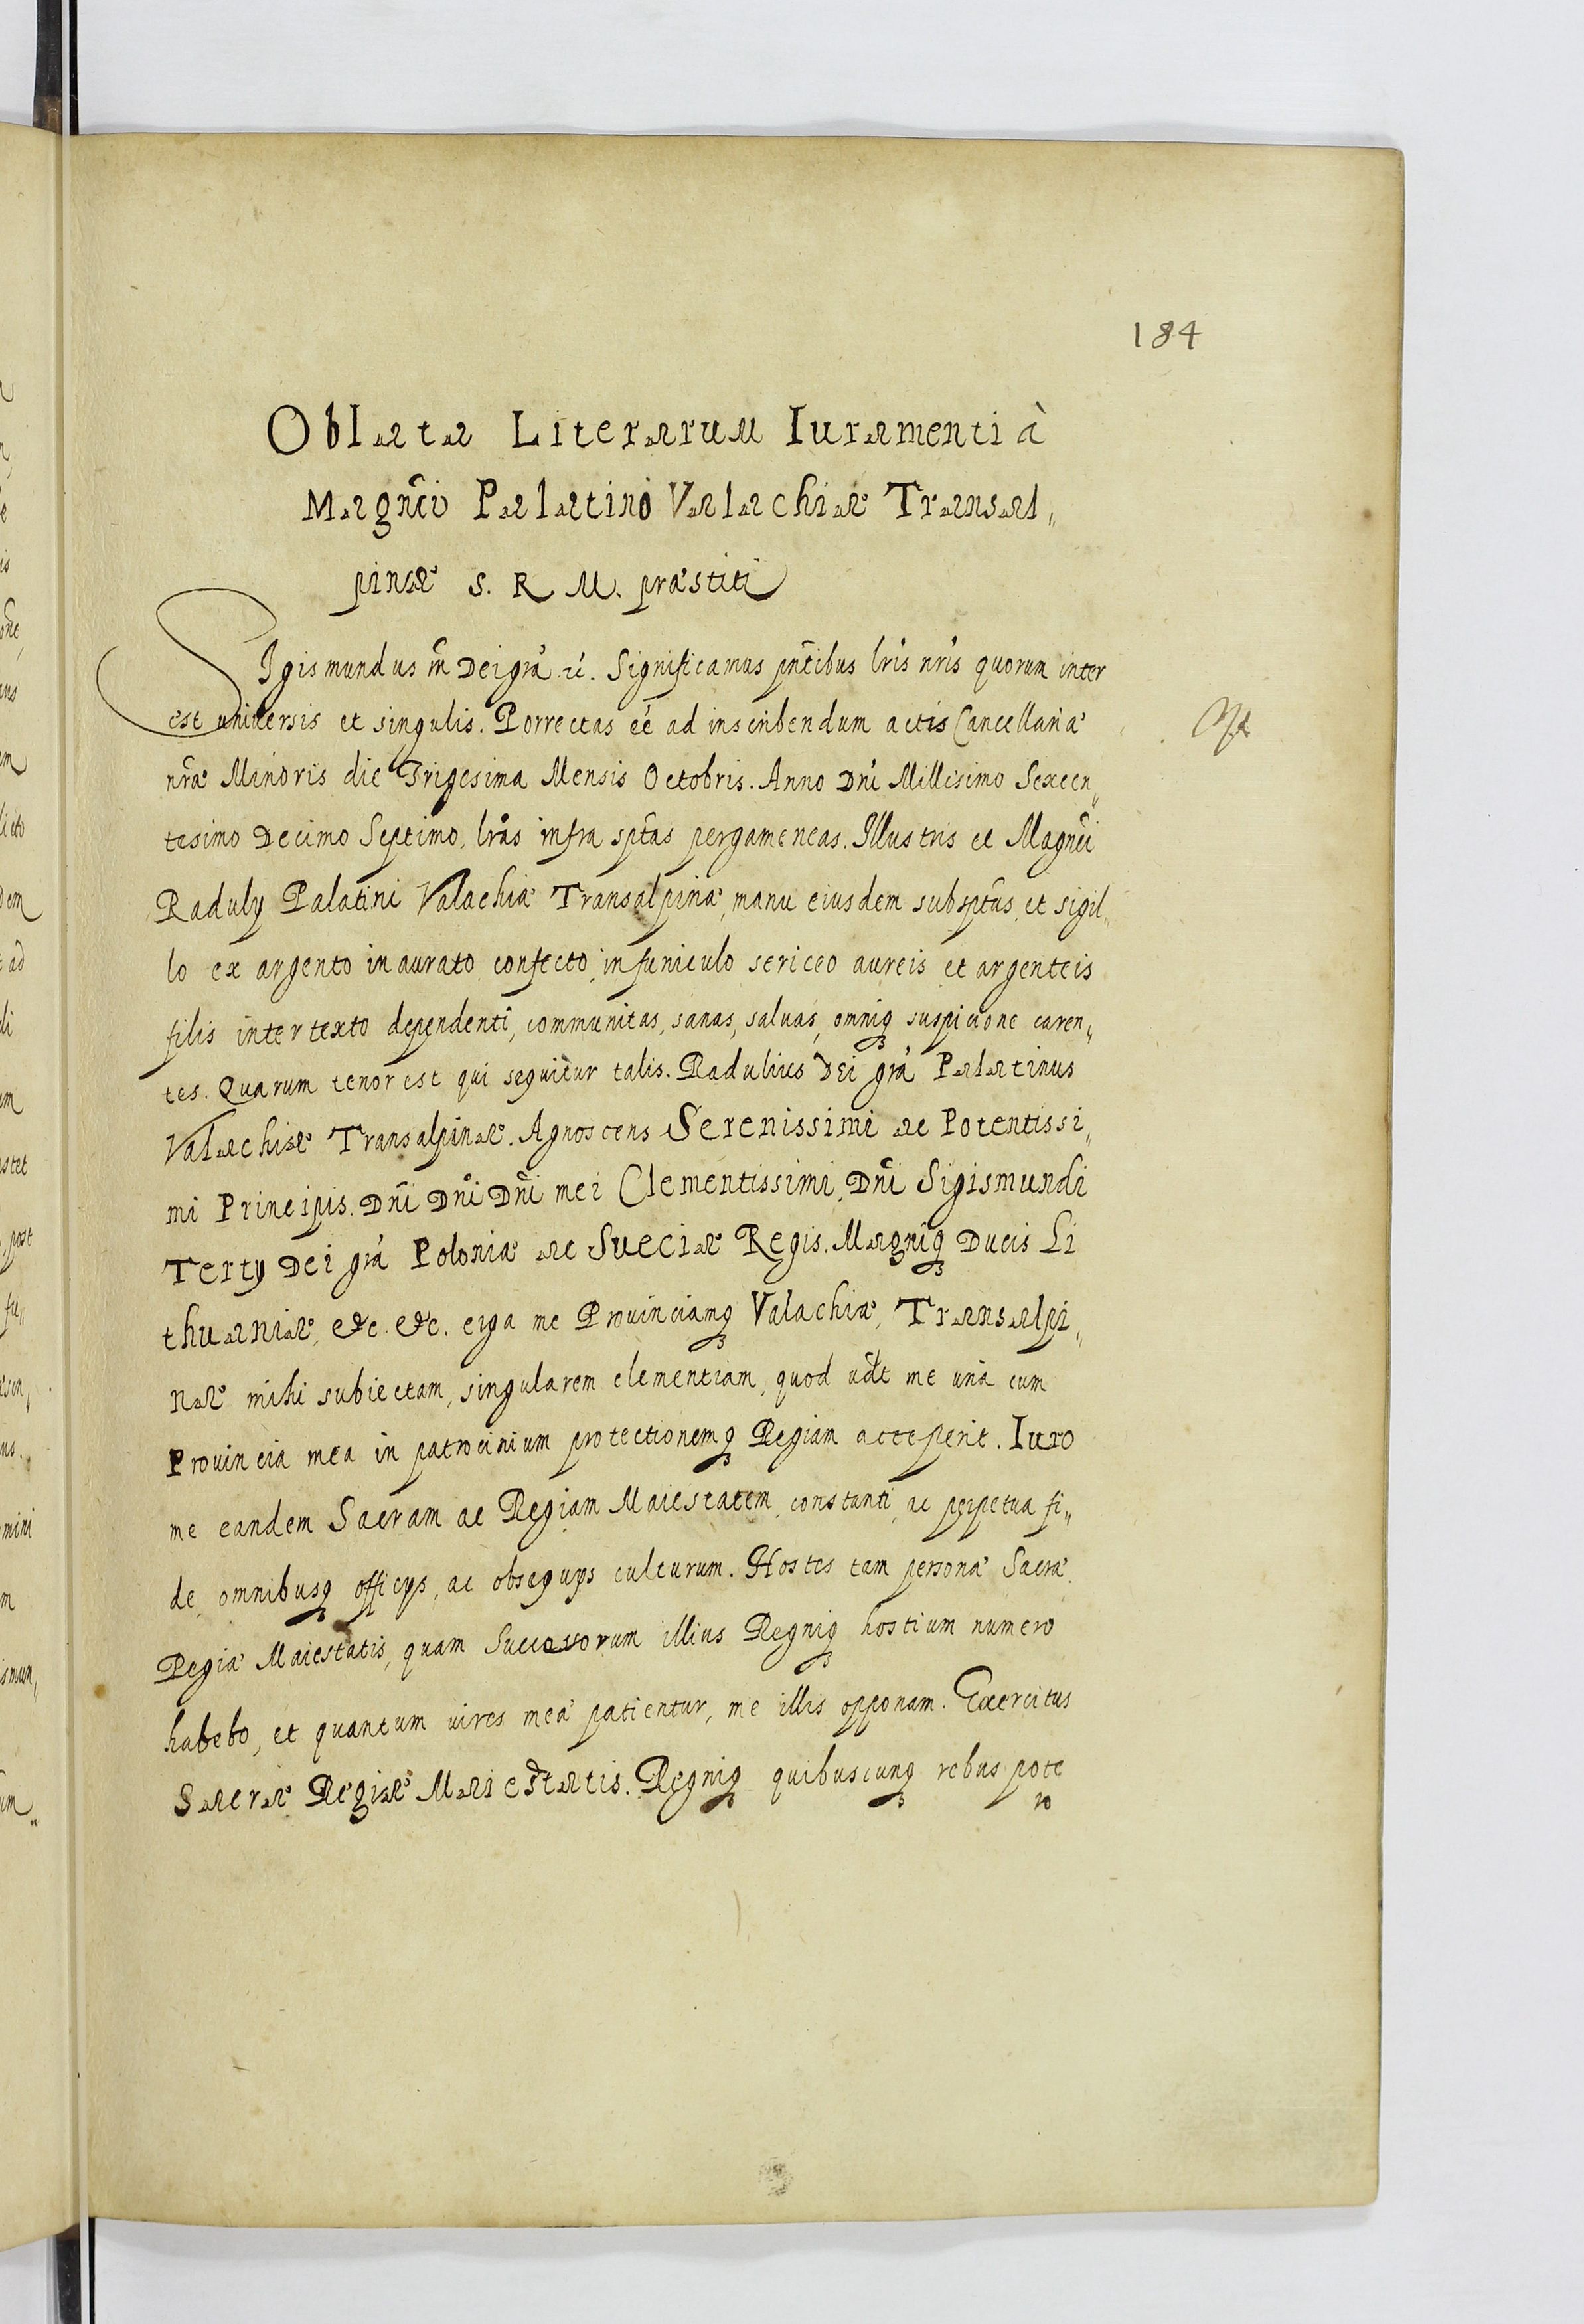 184
Oblata Literarum Iuramenti à
Magnᷤci Palatino Valachiæ Transal„
pinæ S. R. M. præstiti
SIgismundus III Dei grã ꝛc̃. Significamus pñtibus lris nris quorum inter
est universis et singulis. Porrectas eé ad inscribendum actis Cancellariæ
nræ Minoris die Trigesima Mensis Octobris. Anno Dni Millesimo Sexcen„
tesimo Decimo Septimo, lras infra sptas pergameneas. Illustris et Magnci
Raduly Palatini Valachiæ Transalpinæ, manu eiusdem subsptas, et sigil„
lo ex argento inaurato confecto, in funiculo sericeo aureis et argenteis
filis intertexto dependenti, communitas, sanas, saluas, omniq suspicione caren„
tes. Quarum tenor est qui sequitur talis. Radulius Dei grã Palatinus
Valachiæ Transalpinæ. Agnoscens Serenissimi ac Potentissi„
mi Principis. Dñi Dñi Dñi mei Clementissimi, Dñi Sigismundi
Terty Dei grã Poloniæ ac Sueciæ Regis. Magniq Ducis Li
thuaniæ, etc. etc. erga me Prouinciamq Valachiæ, Transalpi„
næ mihi subiectam, singularem clementiam, quod udt me unà cum
Prouincia mea in patrocinium protectionemq Regiam acceperit. Iuro
me eandem Sacram ac Regiam Maiestatem, constanti, ac perpetua fi„
de, omnibusq officys, ac obsequys culturum. Hostes tam personæ Sacræ
Regiæ Maiestatis, quam Successorum illius Regniq hostium numero
habebo, et quantum uires meæ patientur, me illis opponam. Exercitus
Sacræ Regiæ Maiestatis. Regniq quibuscunq rebus pote
ro